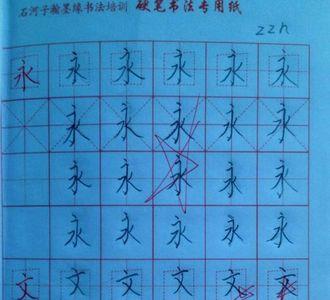 石河子翰墨缘书法培训 硬笔书法专用纸
zzh
永 永 永 永 永 永
永 永 永 永 永
永 永 永 永 永
永 永 永 永 永
文 文 文 文 文 文